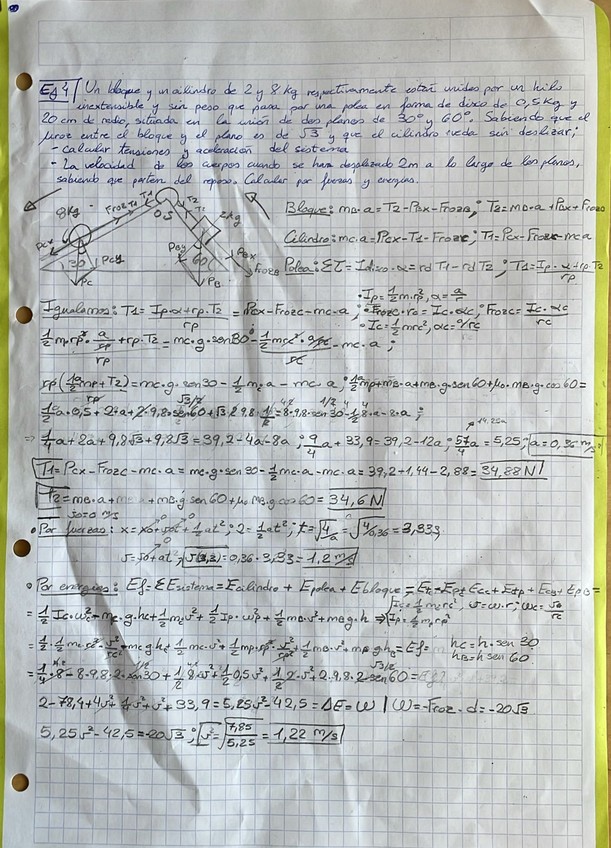 Ej 4 Un bloque y un cilindro de 2 y 8 Kg respectivamente están unidos por un hilo
inextensible y sin peso que pasa por una polea en forma de disco de 0,5 Kg y
20 cm de radio, situada en la unión de dos planos de 30° y 60°. Sabiendo que el
μroz entre el bloque y el plano es de √3 y que el cilindro rueda sin deslizar;
- Calcular tensiones y aceleración del sistema
- La velocidad de los cuerpos cuando se han desplazado 2m a lo largo de los planos,
sabiendo que parten del reposo. Calcular por fuerzas y energías.
8Kg Frozc T1 T1 T2 0,5 T2 2Kg
Pcx Pcy 30 Pc PBy 60 PBx PB FrozB
Bloque: mB·a = T2-PBx-FrozB; T2=mB·a+PBx+FrozB
Cilindro: mc·a=Pcx-T1-Frozc; T1=Pcx-Frozc-mc·a
Polea: Στ=Idisco·α=rd T1-rd T2; T1=Ip·α+rp·T2/rp
·Ip=1/2 m·r², α=a/r
Igualamos: T1=Ip·α+rp·T2/rp = Pcx-Frozc-mc·a; ·Frozc·rc=Ic·αc; Frozc=Ic·αc/rc
·Ic=1/2 mrc², αc=a/rc
1/2 mp·rp²·a/rp+rp·T2/rp = mc·g·sen30-1/2 mc·rc²·a/rc/rc-mc·a;
rp(1/2 a mp+T2)/rp=mc·g·sen30-1/2 mc a-mc·a; 1/2 a mp+mB·a+mB·g·sen60+μo·mB·g·cos60=
1/2 a·0,5+2·a+2·9,8·sen60+√3·2·9,8·1/2=8·9,8·sen30-1/2·8·a-8·a;
⇒1/4 a+2a+9,8√3+9,8√3=39,2-4a-8a; 9/4 a+33,9=39,2-12a; 57/4 a=5,25; a=0,36 m/s²
T1=Pcx-Frozc-mc·a=mc·g·sen30-1/2 mc·a-mc·a=39,2-1,44-2,88=34,88N
T2=mB·a+mB·g·sen60+μo·mB·g·cos60=34,6N
v0=0 m/s
·Por fuerzas: x=x0+v0t+1/2 at²; 2=1/2 at²; t=√4/a=√4/0,36=3,333
v=v0+at; v(3,3)=0,36·3,33=1,2 m/s
·Por energías: Ef=ΣEsistema=Ecilindro+Epolea+Ebloque=
=1/2 Ic·ωc²+mc·g·hc+1/2 mcv²+1/2 Ip·ωp²+1/2 mB·v²+mB·g·h ⇒ Ic=1/2 mcrc², v=ω·r; ωc=v/rc
Ip=1/2 mprp²
=1/2·1/2 mc·rc²·v²/rc²+mc·g·hc+1/2 mc·v²+1/2·1/2 mp·rp²·v²/rp²+1/2 mB·v²+mB·g·hB=Ef= hc=h·sen30
hB=h·sen60
=1/4·8-8·9,8·2·sen30+1/2 8v²+1/2 0,5v²+1/2 2·v²+2·9,8·2·sen60=
2-78,4+4v²+1/4v²+v²+33,9=5,25v²-42,5=ΔE=W | W=-Froz·d=-20√3
5,25v²-42,5=-20√3; v=√7,85/5,25=1,22 m/s